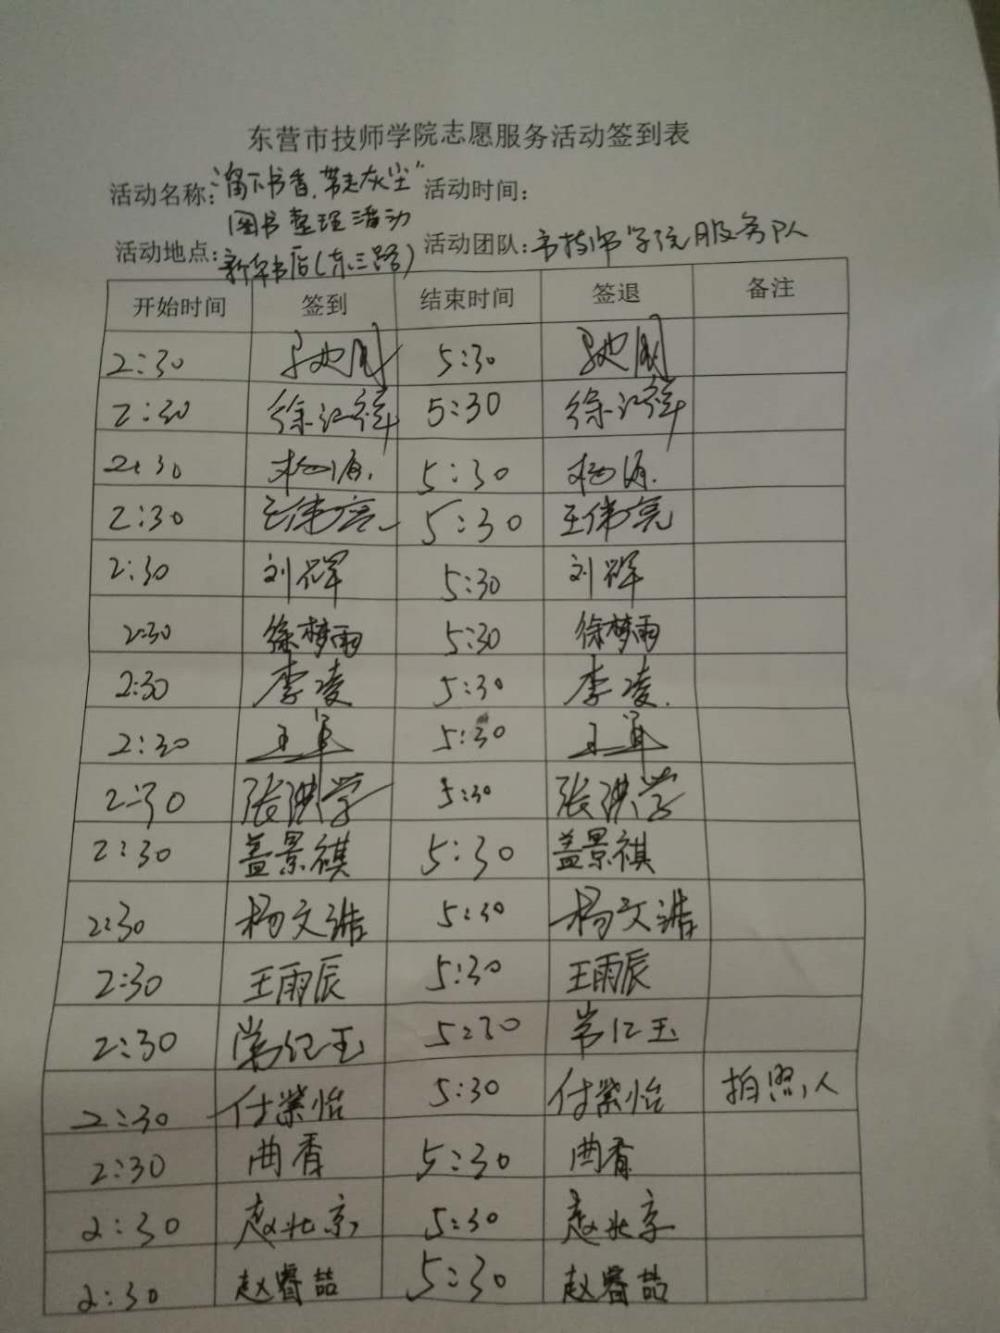 东营市技师学院志愿服务活动签到表
活动名称:“留下书香,带走灰尘” 活动时间:
图书整理活动
活动地点:新华书店(东三路) 活动团队:市技师学院服务队
开始时间 签到 结束时间 签退 备注
2:30 5:30
2:30 徐江祥 5:30 徐江祥
2:30 5:30
2:30 王伟亮 5:30 王伟亮
2:30 刘辉 5:30 刘辉
2:30 徐梦雨 5:30 徐梦雨
2:30 李凌 5:30 李凌
2:30 5:30
2:30 张洪学 5:30 张洪学
2:30 盖景祺 5:30 盖景祺
2:30 杨文浩 5:30 杨文浩
2:30 王雨辰 5:30 王雨辰
2:30 5:30
2:30 付紫怡 5:30 付紫怡 拍照人
2:30 曲香 5:30 曲香
2:30 赵北京 5:30 赵北京
2:30 赵睿喆 5:30 赵睿喆